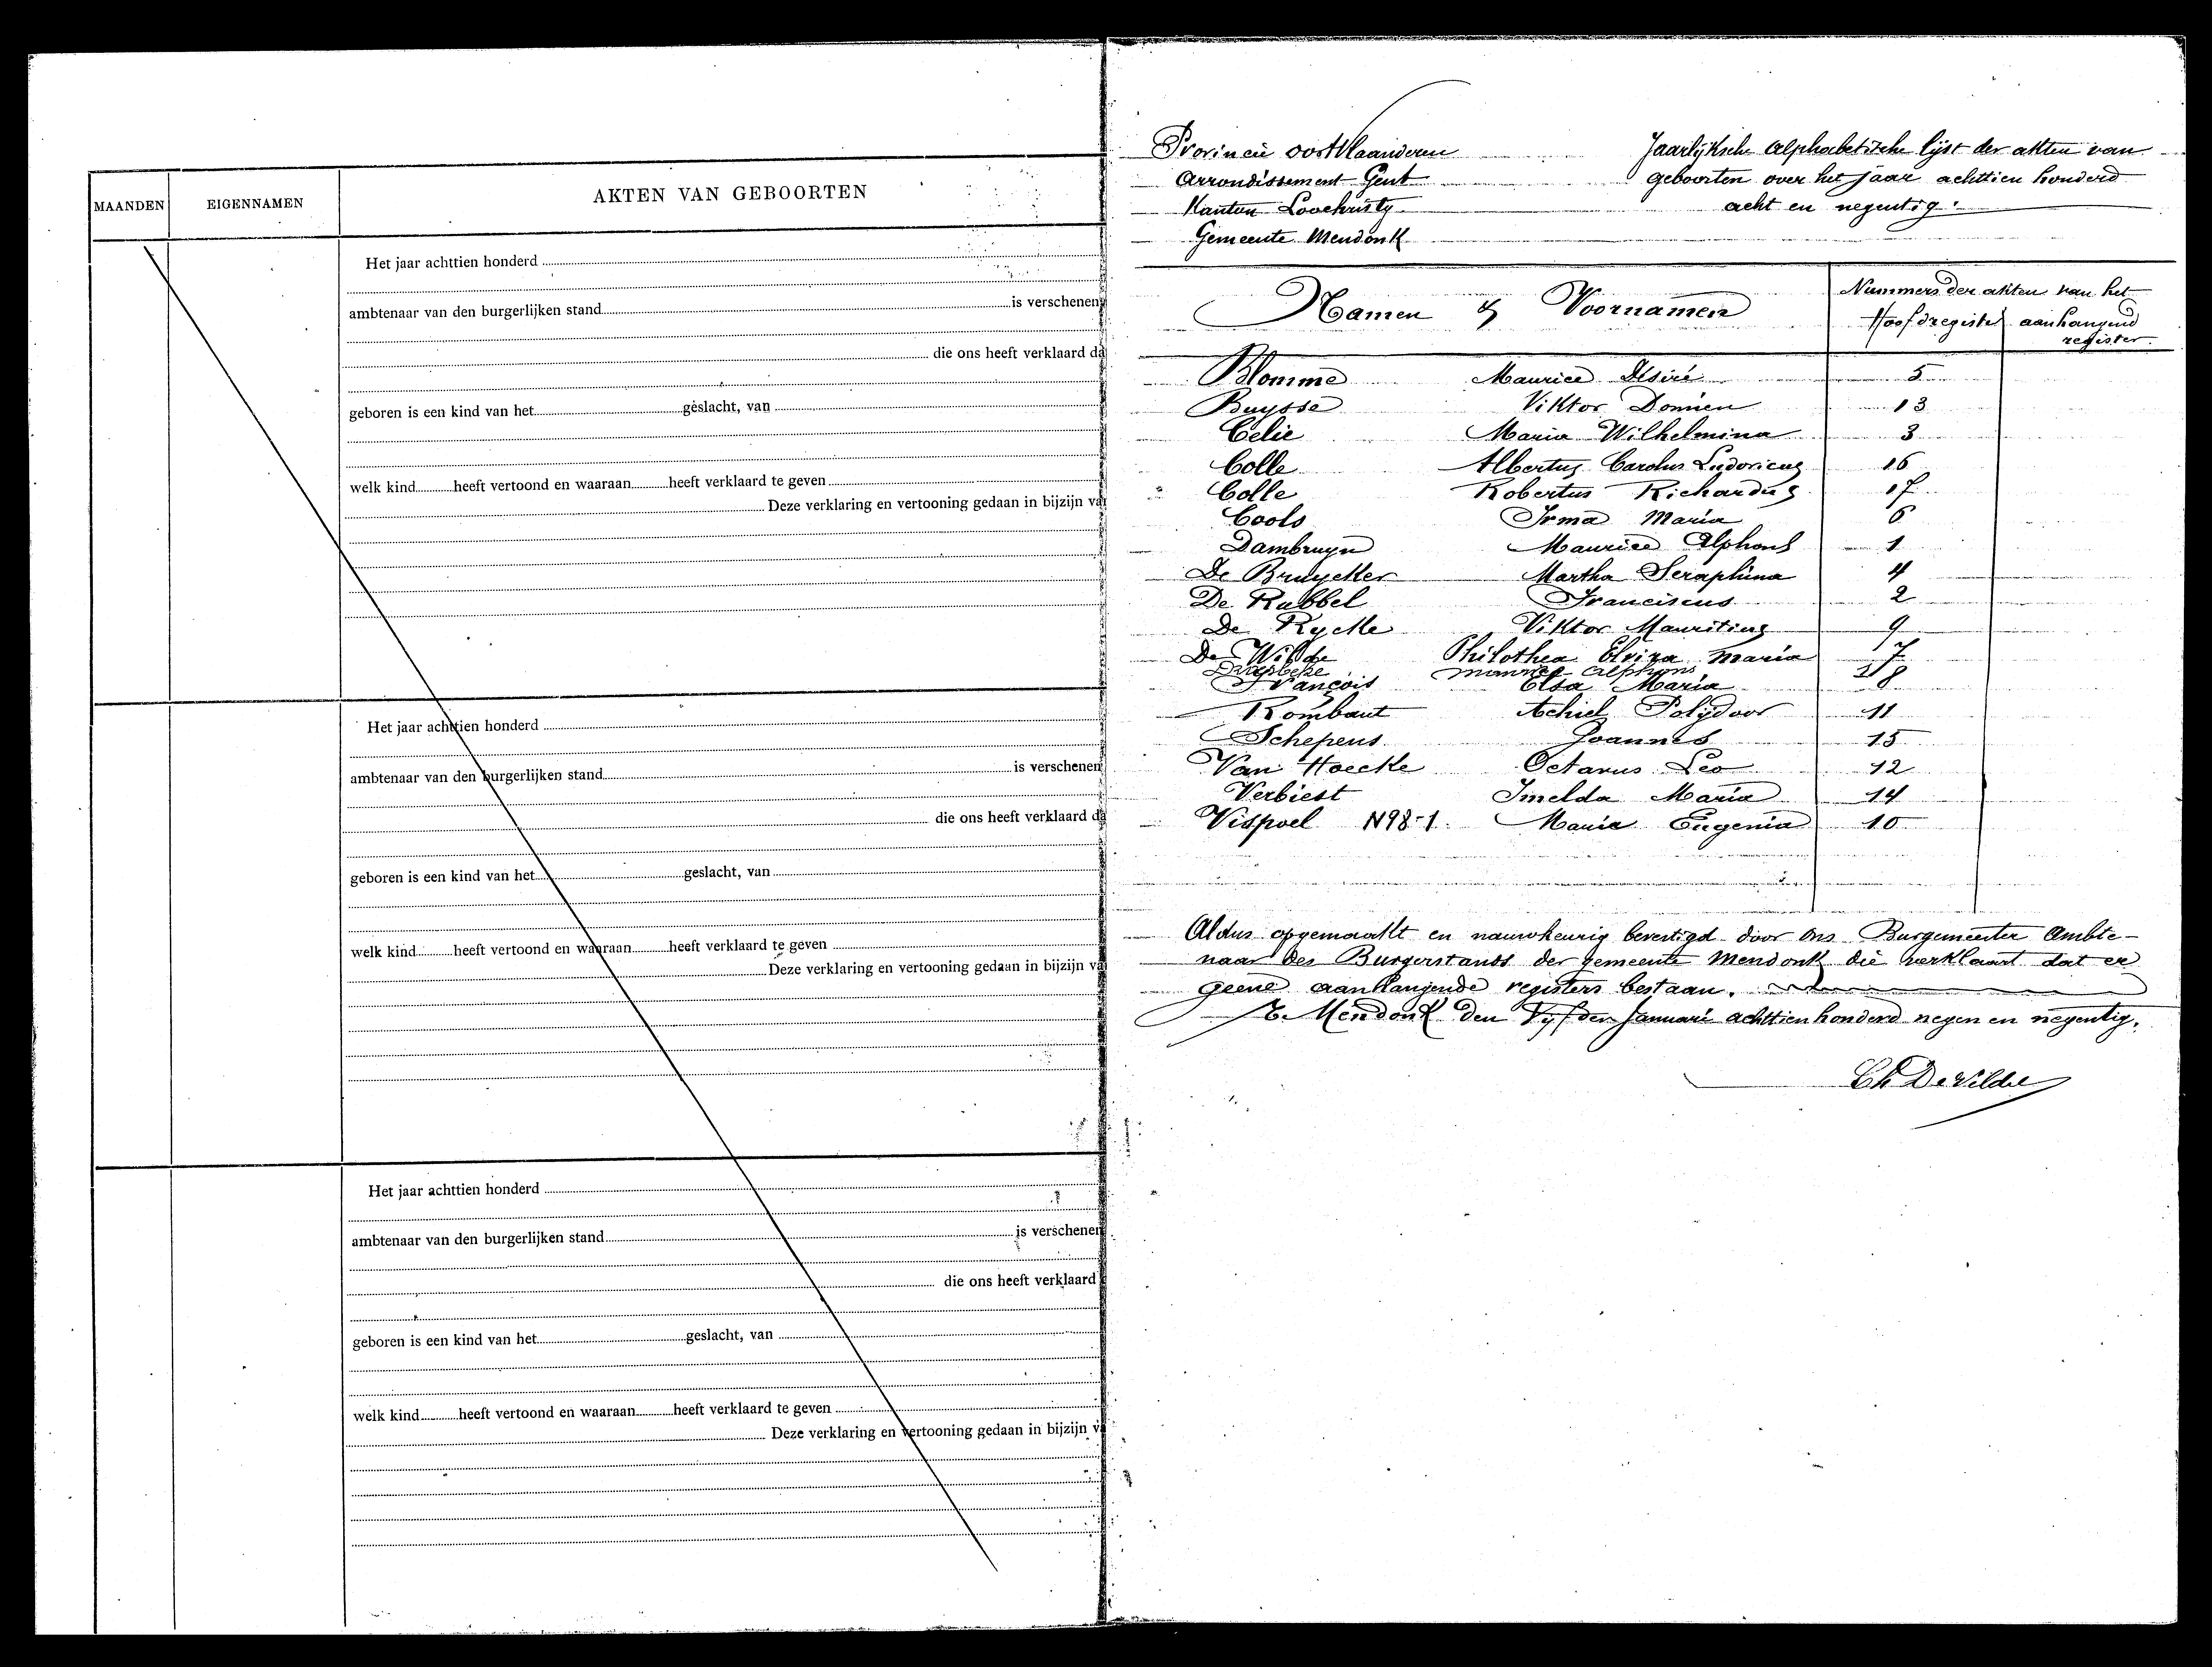 AKTEN VAN GEBOORTEN
MAANDEN
EIGENNAMEN
Het jaar achttien honderd
ambtenaar van den burgerlijken stand is verschenen
die ons heeft verklaard da
geboren is een kind van het geslacht, van
welk kind heeft vertoond en waaraan heeft verklaard te geven
Deze verklaring en vertooning gedaan in bijzijn va
Het jaar achttien honderd
ambtenaar van den burgerlijken stand is verschenen
die ons heeft verklaard da
geboren is een kind van het geslacht, van
welk kind heeft vertoond en waaraan heeft verklaard te geven
Deze verklaring en vertooning gedaan in bijzijn va
Het jaar achttien honderd
ambtenaar van den burgerlijken stand is verschenen
die ons heeft verklaard
geboren is een kind van het geslacht, van
welk kind heeft vertoond en waaraan heeft verklaard te geven
Deze verklaring en vertooning gedaan in bijzijn va
Provincie OostVlaanderen
Arrondissement Gent
Kanton Loochristy
Gemeente Mendonk
Jaarlijksche Alphabetische lijst der akten van
geboorten over het jaar achttien honderd
acht en negentig.
Namen & Voornamen
Nummers der akten van het
Hoofdregister aanhangend
register
Blomme Maurice Desiré 5
Buysse Viktor Domien 13
Celie Maria Wilhelmina 3
Colle Albertus Carolus Ludovicus 16
Colle Robertus Richardus 17
Cools Irma Maria 6
Dambruyn Maurice Alphons 1
De Bruycker Martha Seraphina 4
De Rubbel Franciscus 2
De Rycke Viktor Mauritius 9
De Wilde Philothea Elvira Maria 7
Alphons
François Elsa Maria 8
Rombaut Achiel Polydoor 11
Schepens Joannes 15
Van Hoecke Octavus Leo 12
Verbiest Imelda Maria 14
Vispoel N98-1. Maria Eugenia 10
Aldus opgemaakt en nauwkeurig bevestigd door ons Burgemeester Ambte-
naar des Burgerstands der gemeente Mendonk die verklaart dat er
geene aanhangende registers bestaan.
Te Mendonk den Vijfden Januari achttienhonderd negen en negentig.
Ch De Wilde